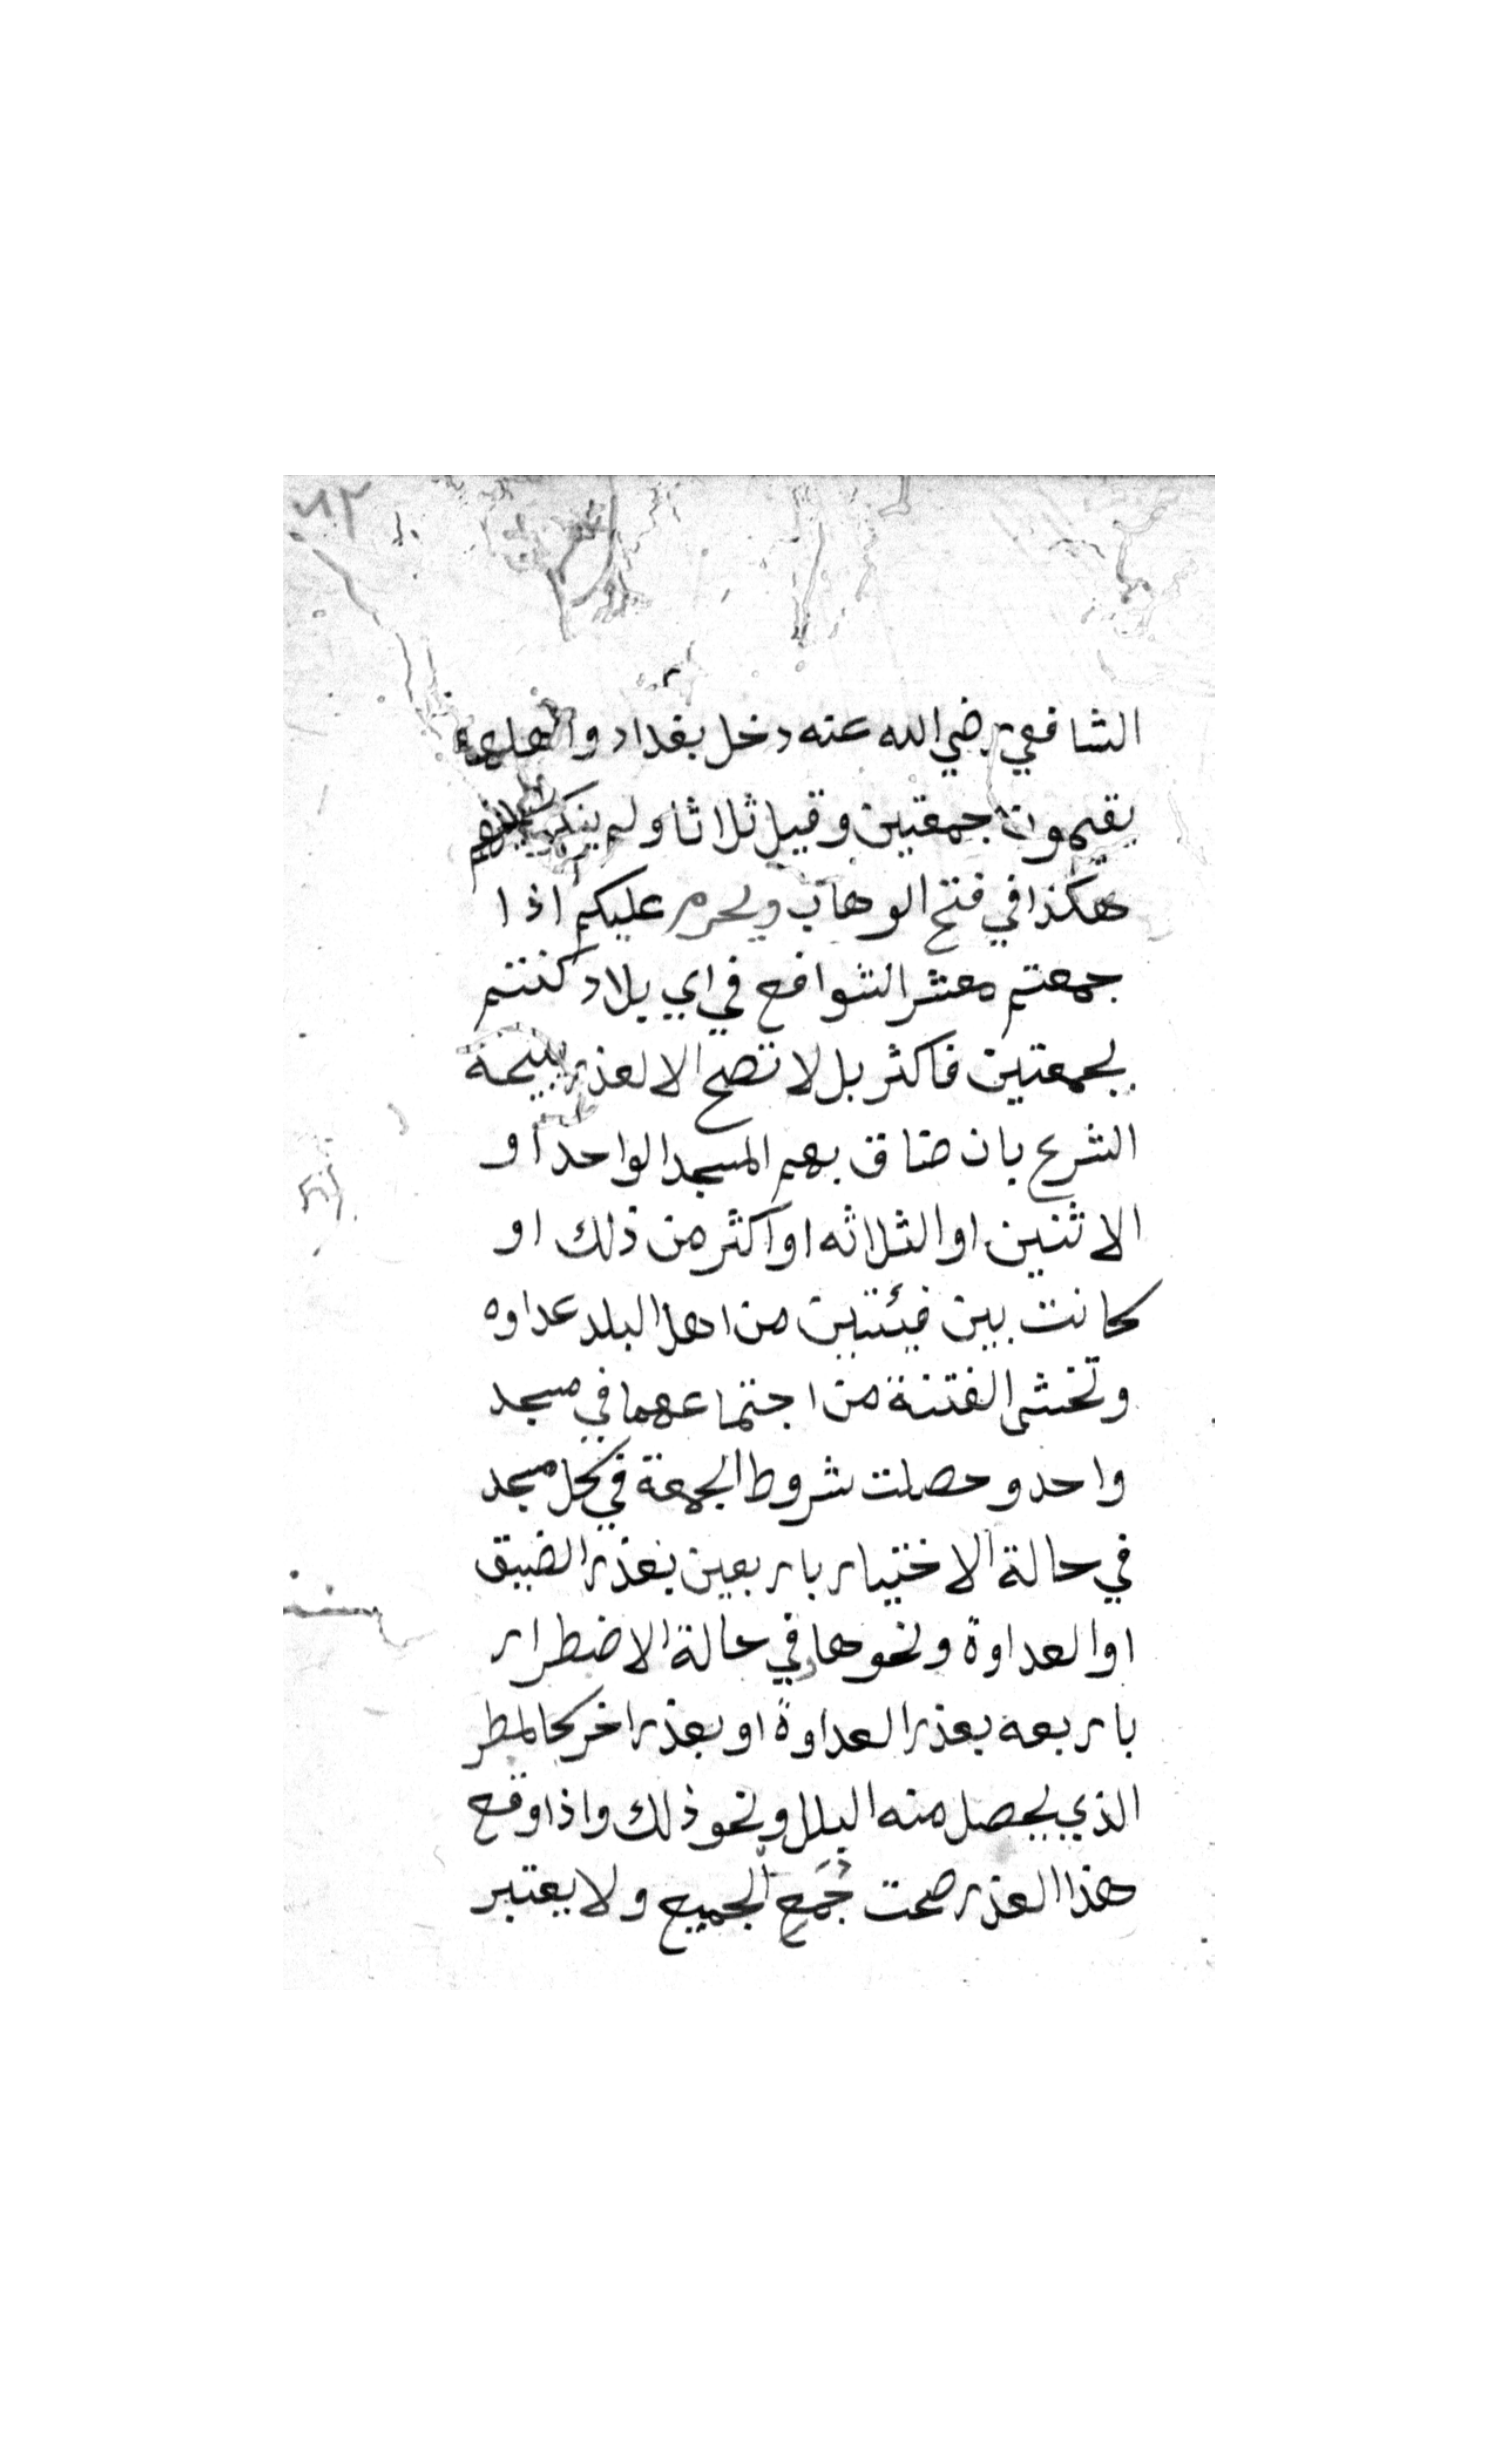 الشافعي رضي الله عنه دخل بغداد واهلها
يقيمون جمعتين وقيل ثلاثا ولم ينكر عليهم
هكذا في فتح الوهاب ويحرم عليكم اذا
جمعتم معشر الشوافع في اي بلاد كنتم
بجمعتين فاكثر بل لا تصح الا لعذر يبيحه
الشرع بان ضاق بهم المسجد الواحد او
الاثنين او الثلاثه او اكثر من ذلك او
كانت بين فئتين من اهل البلد عداوه
وتخشى الفتنة من اجتماعهما في مسجد
واحد وحصلت شروط الجمعة في كل مسجد
في حالة الاختيار باربعين بعذر الضيق
او العداوة ونحوها في حالة الاضطرار
باربعه بعذر العداوة او بعذر اخر كالمطر
الذي يحصل منه البلل ونحو ذلك واذا وقع
هذا العذر صحت جُمَع الجميع ولا يعتبر